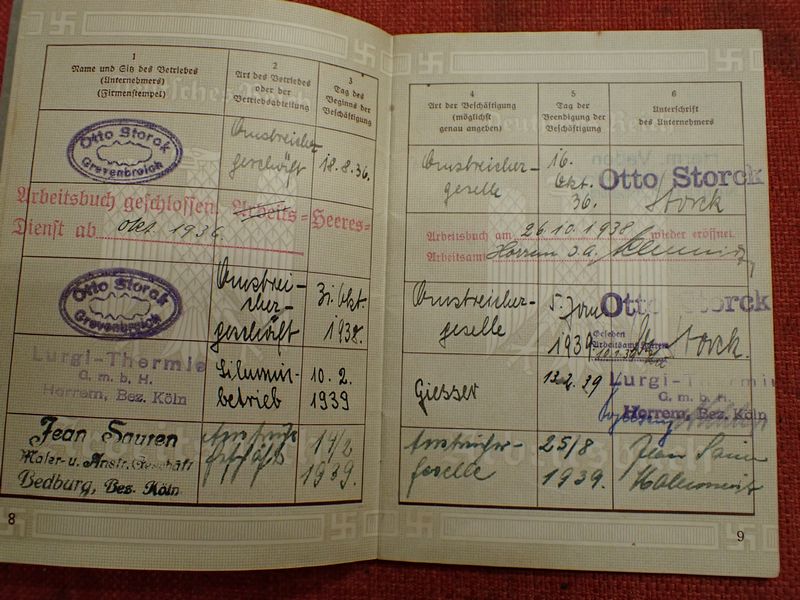 1
Name und Sitz des Betriebes
(Unternehmers)
(Firmenstempel)
2
Art des Betriebes
oder der
Betriebsabteilung
3
Tag des
Beginns der
Beschäftigung
Otto Storck
Grevenbroich
Anstreicher
geschäft
18.8.36.
Arbeitsbuch geschlossen. Arbeits= Heeres=
Dienst ab Okt. 1936.
Otto Storck
Grevenbroich
Anstrei-
cher-
geschäft
31. Okt.
1938.
Lurgi-Thermie
G. m. b. H.
Horrem, Bez. Köln
Silumin-
betrieb
10.2.
1939
Jean Sauren
Maler- u. Anstr. Geschäft
Bedburg, Bez. Köln
14/2
1939.
8
4
Art der Beschäftigung
(möglichst
genau angeben)
5
Tag der
Beendigung der
Beschäftigung
6
Unterschrift
des Unternehmers
Anstreicher-
geselle
16.
Okt.
36.
Otto Storck
Storck
Arbeitsbuch am 26.10.1938 wieder eröffnet.
Arbeitsamt Horrem
Anstreicher-
geselle
5. Jan
1939
Otto Storck
Gesehen
Arbeitsamt
10.1.39
Storck.
Giesser
13.2.39
Lurgi-Thermie
G. m. b. H.
Horrem, Bez. Köln
Anstreicher-
geselle
25/8
1939.
Jean
9